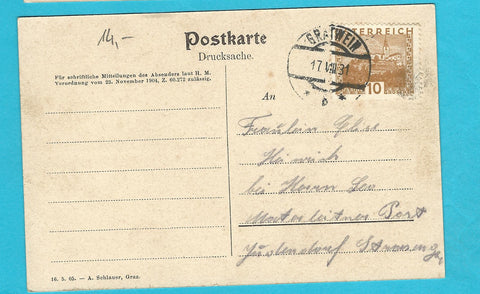 14,-
Postkarte
Drucksache.
Für schriftliche Mitteilungen des Absenders laut H. M.
Verordnung vom 23. November 1904, Z. 60.272 zulässig.
An
GRATWEIN
17 VIII 31
ÖSTERREICH
10
Fräulein
Heinrich
bei Herrn
Post
Judendorf
16. 5. 05. – A. Schlauer, Graz.